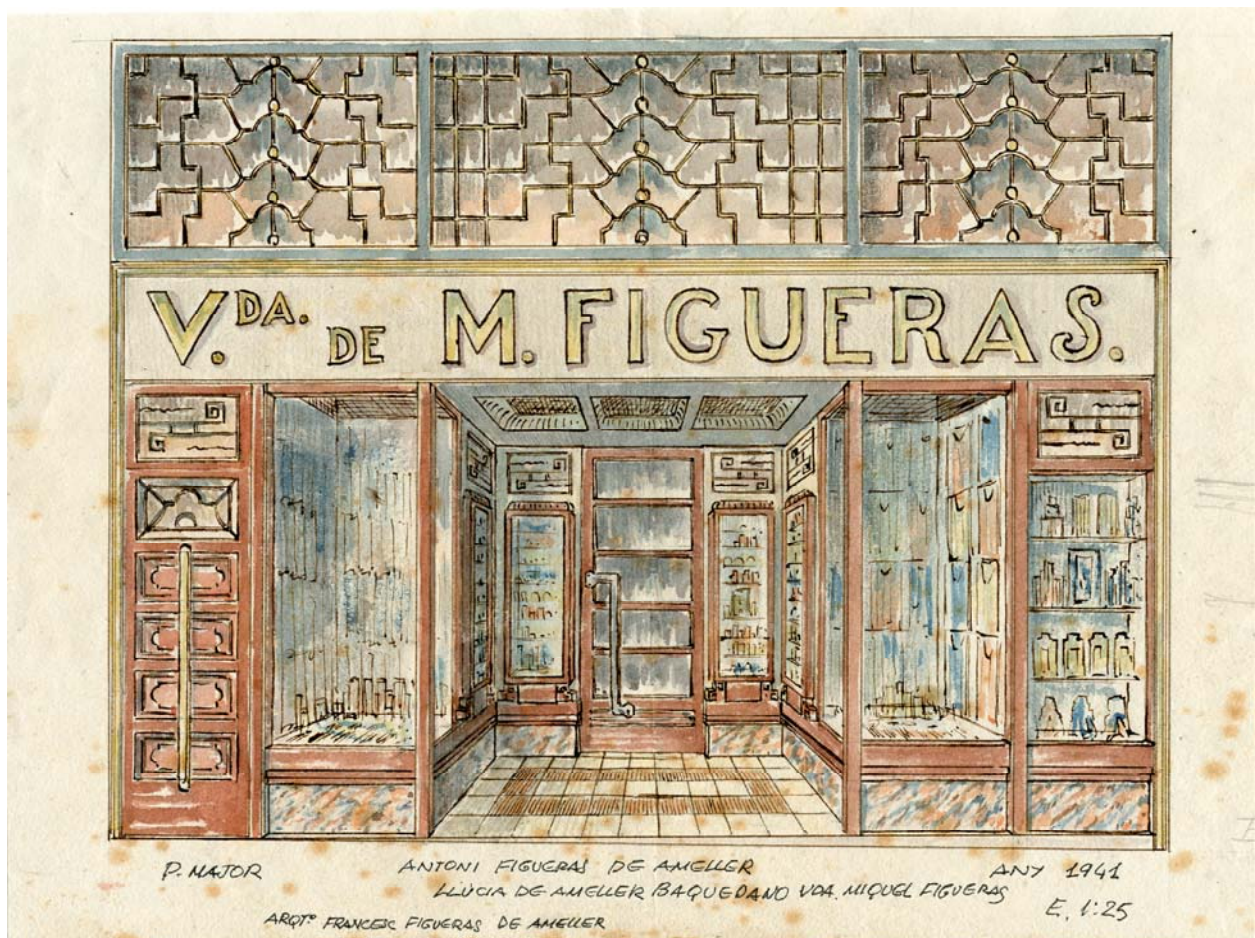 V.DA. DE M. FIGUERAS.
P. MAJOR
ANTONI FIGUERAS DE AMELLER
ANY 1941
LLÚCIA DE AMELLER BAQUEDANO VDA. MIQUEL FIGUERAS
E. 1:25
ARQTº FRANCESC FIGUERAS DE AMELLER